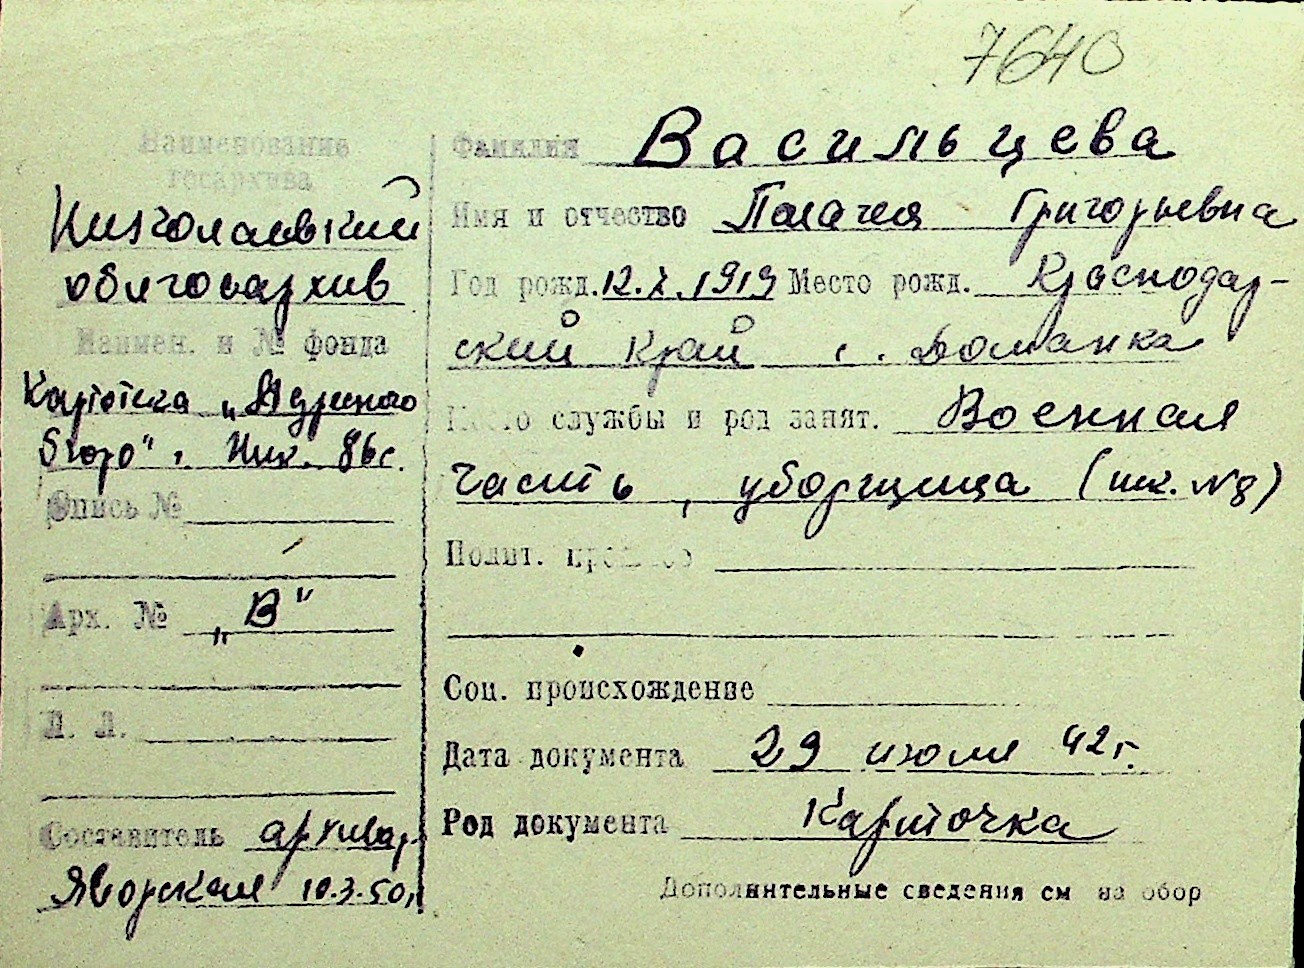 7640
Наименование
госархива
Николаевский
облгосархив
Наимен. и № фонда
Картотека „Адресного
бюро". Ник. 86с.
Опись №
Арх. № „В"
Л. Л.
Составитель архивар
Яворская 10.3.50г
Фамилия Васильцева
Имя и отчество Палагея Григорьевна
Год рожд. 12.X.1919 Место рожд. Краснодар-
ский край с. Доманка
Место службы и род занят. Военная
часть, уборщица (шк. №8)
Полит. прошлое
Соц. происхождение
Дата документа 29 июля 42г.
Род документа Карточка
Дополнительные сведения см на обор